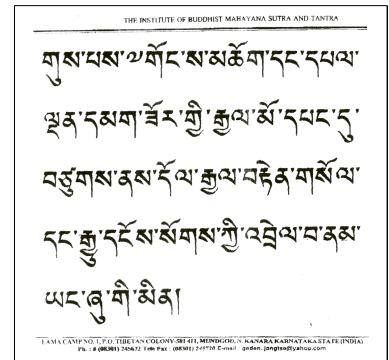 THE INSTITUTE OF BUDDHIST MAHAYANA SUTRA AND TANTRA
གུས་པས་༧གོང་ས་མཆོག་དང་དཔལ་
ལྡན་དམག་ཟོར་གྱི་རྒྱལ་མོ་དཔང་དུ་
བཙུགས་ནས་དོལ་རྒྱལ་བརྟེན་གསོལ་
དང་རྒྱུ་དངོས་སོགས་ཀྱི་འབྲེལ་བ་ནམ་
ཡང་ཞུ་གི་མིན།
LAMA CAMP NO. 1, P.O. TIBETAN COLONY-581 411, MUNDGOD, N. KANARA KARNATAKA STATE (INDIA)
Ph. : # (08301) 245672 Tele Fax : (08301) E-mail gaden_jangtse@yahoo.com